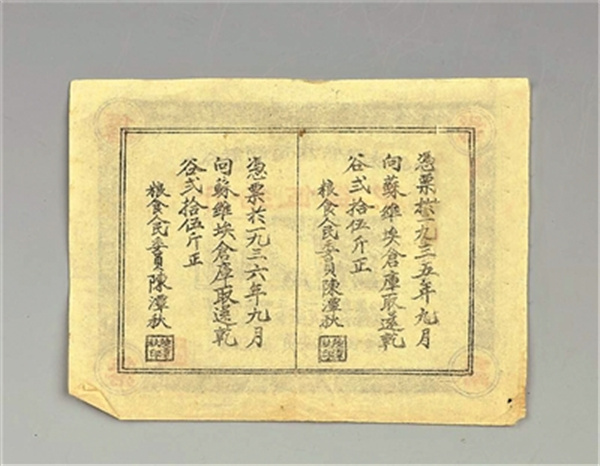 憑票於一九三五年九月
向蘇維埃倉庫取還乾
谷弍拾伍斤正
粮食人民委員陳潭秋
憑票於一九三六年九月
向蘇維埃倉庫取還乾
谷弍拾伍斤正
粮食人民委員陳潭秋